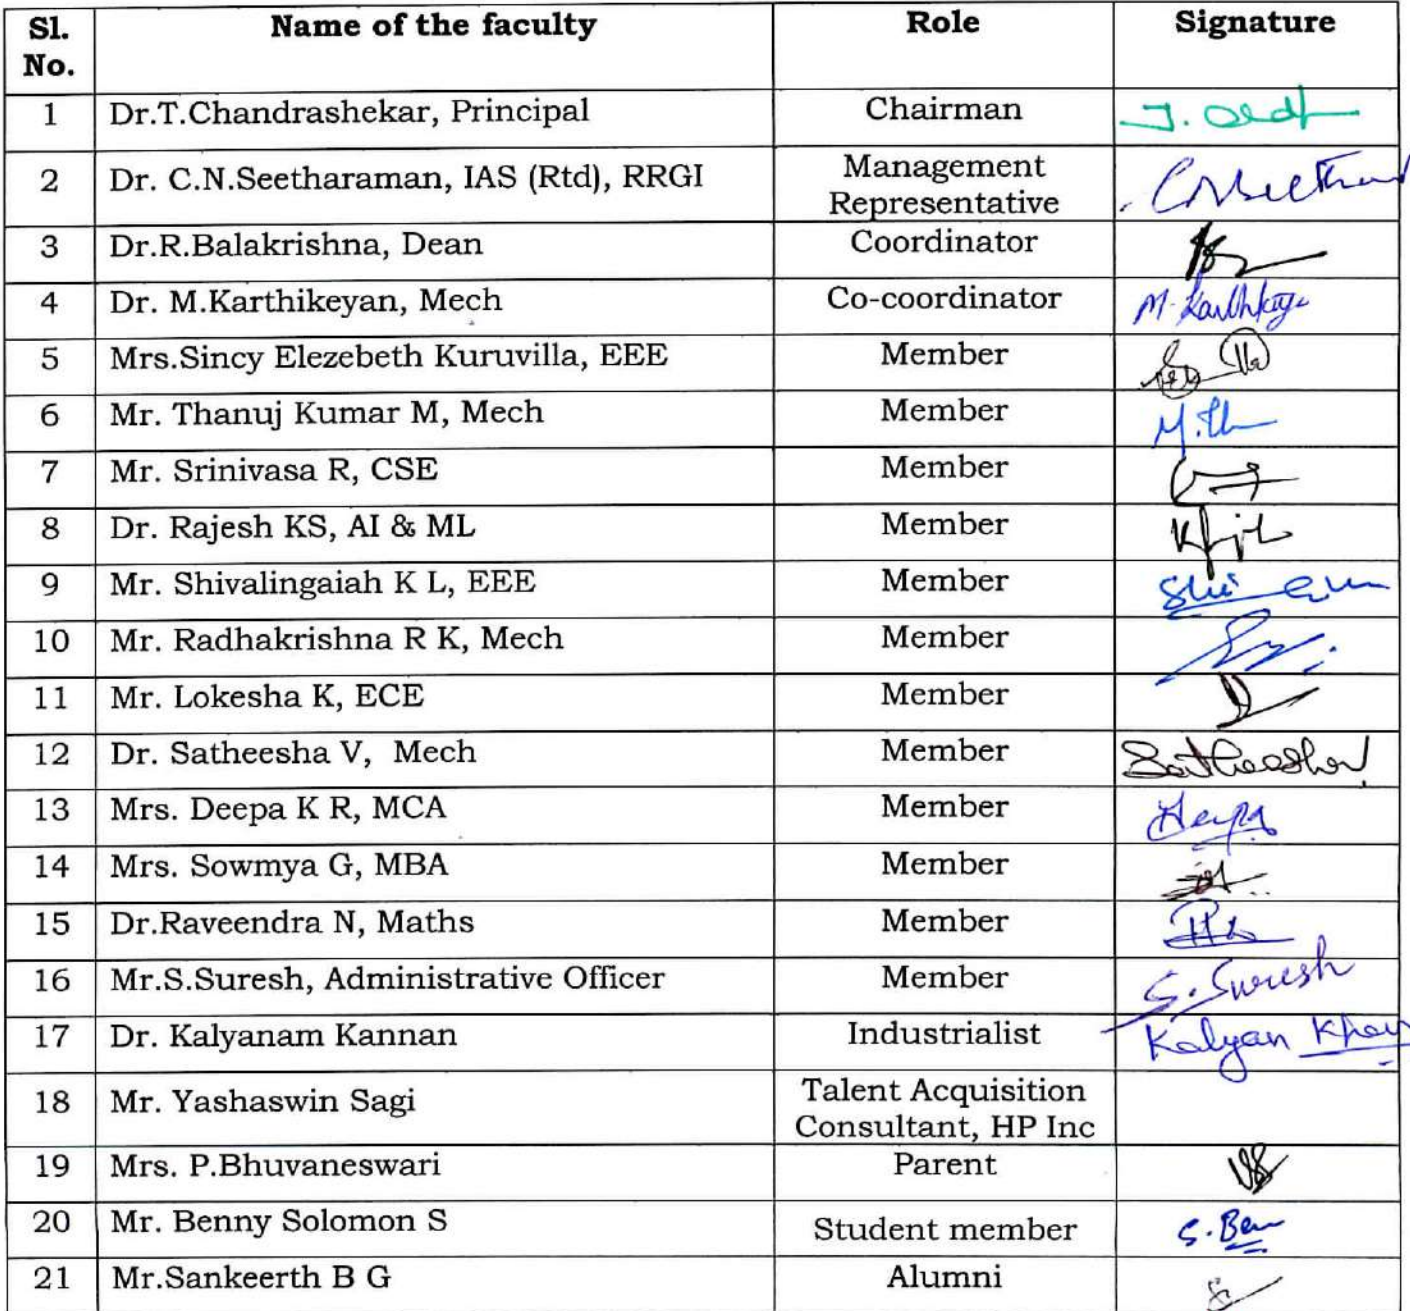 Sl. No. Name of the faculty Role Signature
1 Dr.T.Chandrashekar, Principal Chairman
2 Dr. C.N.Seetharaman, IAS (Rtd), RRGI Management Representative
3 Dr.R.Balakrishna, Dean Coordinator
4 Dr. M.Karthikeyan, Mech Co-coordinator
5 Mrs.Sincy Elezebeth Kuruvilla, EEE Member
6 Mr. Thanuj Kumar M, Mech Member
7 Mr. Srinivasa R, CSE Member
8 Dr. Rajesh KS, AI & ML Member
9 Mr. Shivalingaiah K L, EEE Member
10 Mr. Radhakrishna R K, Mech Member
11 Mr. Lokesha K, ECE Member
12 Dr. Satheesha V, Mech Member
13 Mrs. Deepa K R, MCA Member
14 Mrs. Sowmya G, MBA Member
15 Dr.Raveendra N, Maths Member
16 Mr.S.Suresh, Administrative Officer Member S.Suresh
17 Dr. Kalyanam Kannan Industrialist Kalyan
18 Mr. Yashaswin Sagi Talent Acquisition Consultant, HP Inc
19 Mrs. P.Bhuvaneswari Parent
20 Mr. Benny Solomon S Student member S.Ben
21 Mr.Sankeerth B G Alumni